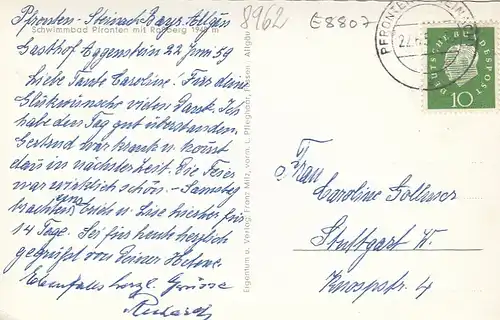 Pfronten-Steinach Bayr. Allgäu
Schwimmbad Pfronten mit Roßberg 1940 m
Gasthof Aggenstein 22 Juni 59
Liebe Tante Caroline! Für deine
Glückwünsche vielen Dank. Ich
habe den Tag gut überstanden.
Gertrud war krank u. kommt
dann in nächster Zeit. Die Feier
war wirklich schön. - Samstag
brachten uns Erich u. Lise hierher für
14 Tage. Sei für heute herzlich
gegrüßt von Deiner Helene.
Ebenfalls herzl. Grüsse
Richard
8962
E8807
PFRONTEN-STEINACH
22.6.
DEUTSCHE BUNDESPOST
10
Eigentum u. Verlag: Franz Milz, vorm. L. Pfleghahr, Füssen Allgäu
Frau
Caroline Gollmer
Stuttgart W.
Knospstr. 4